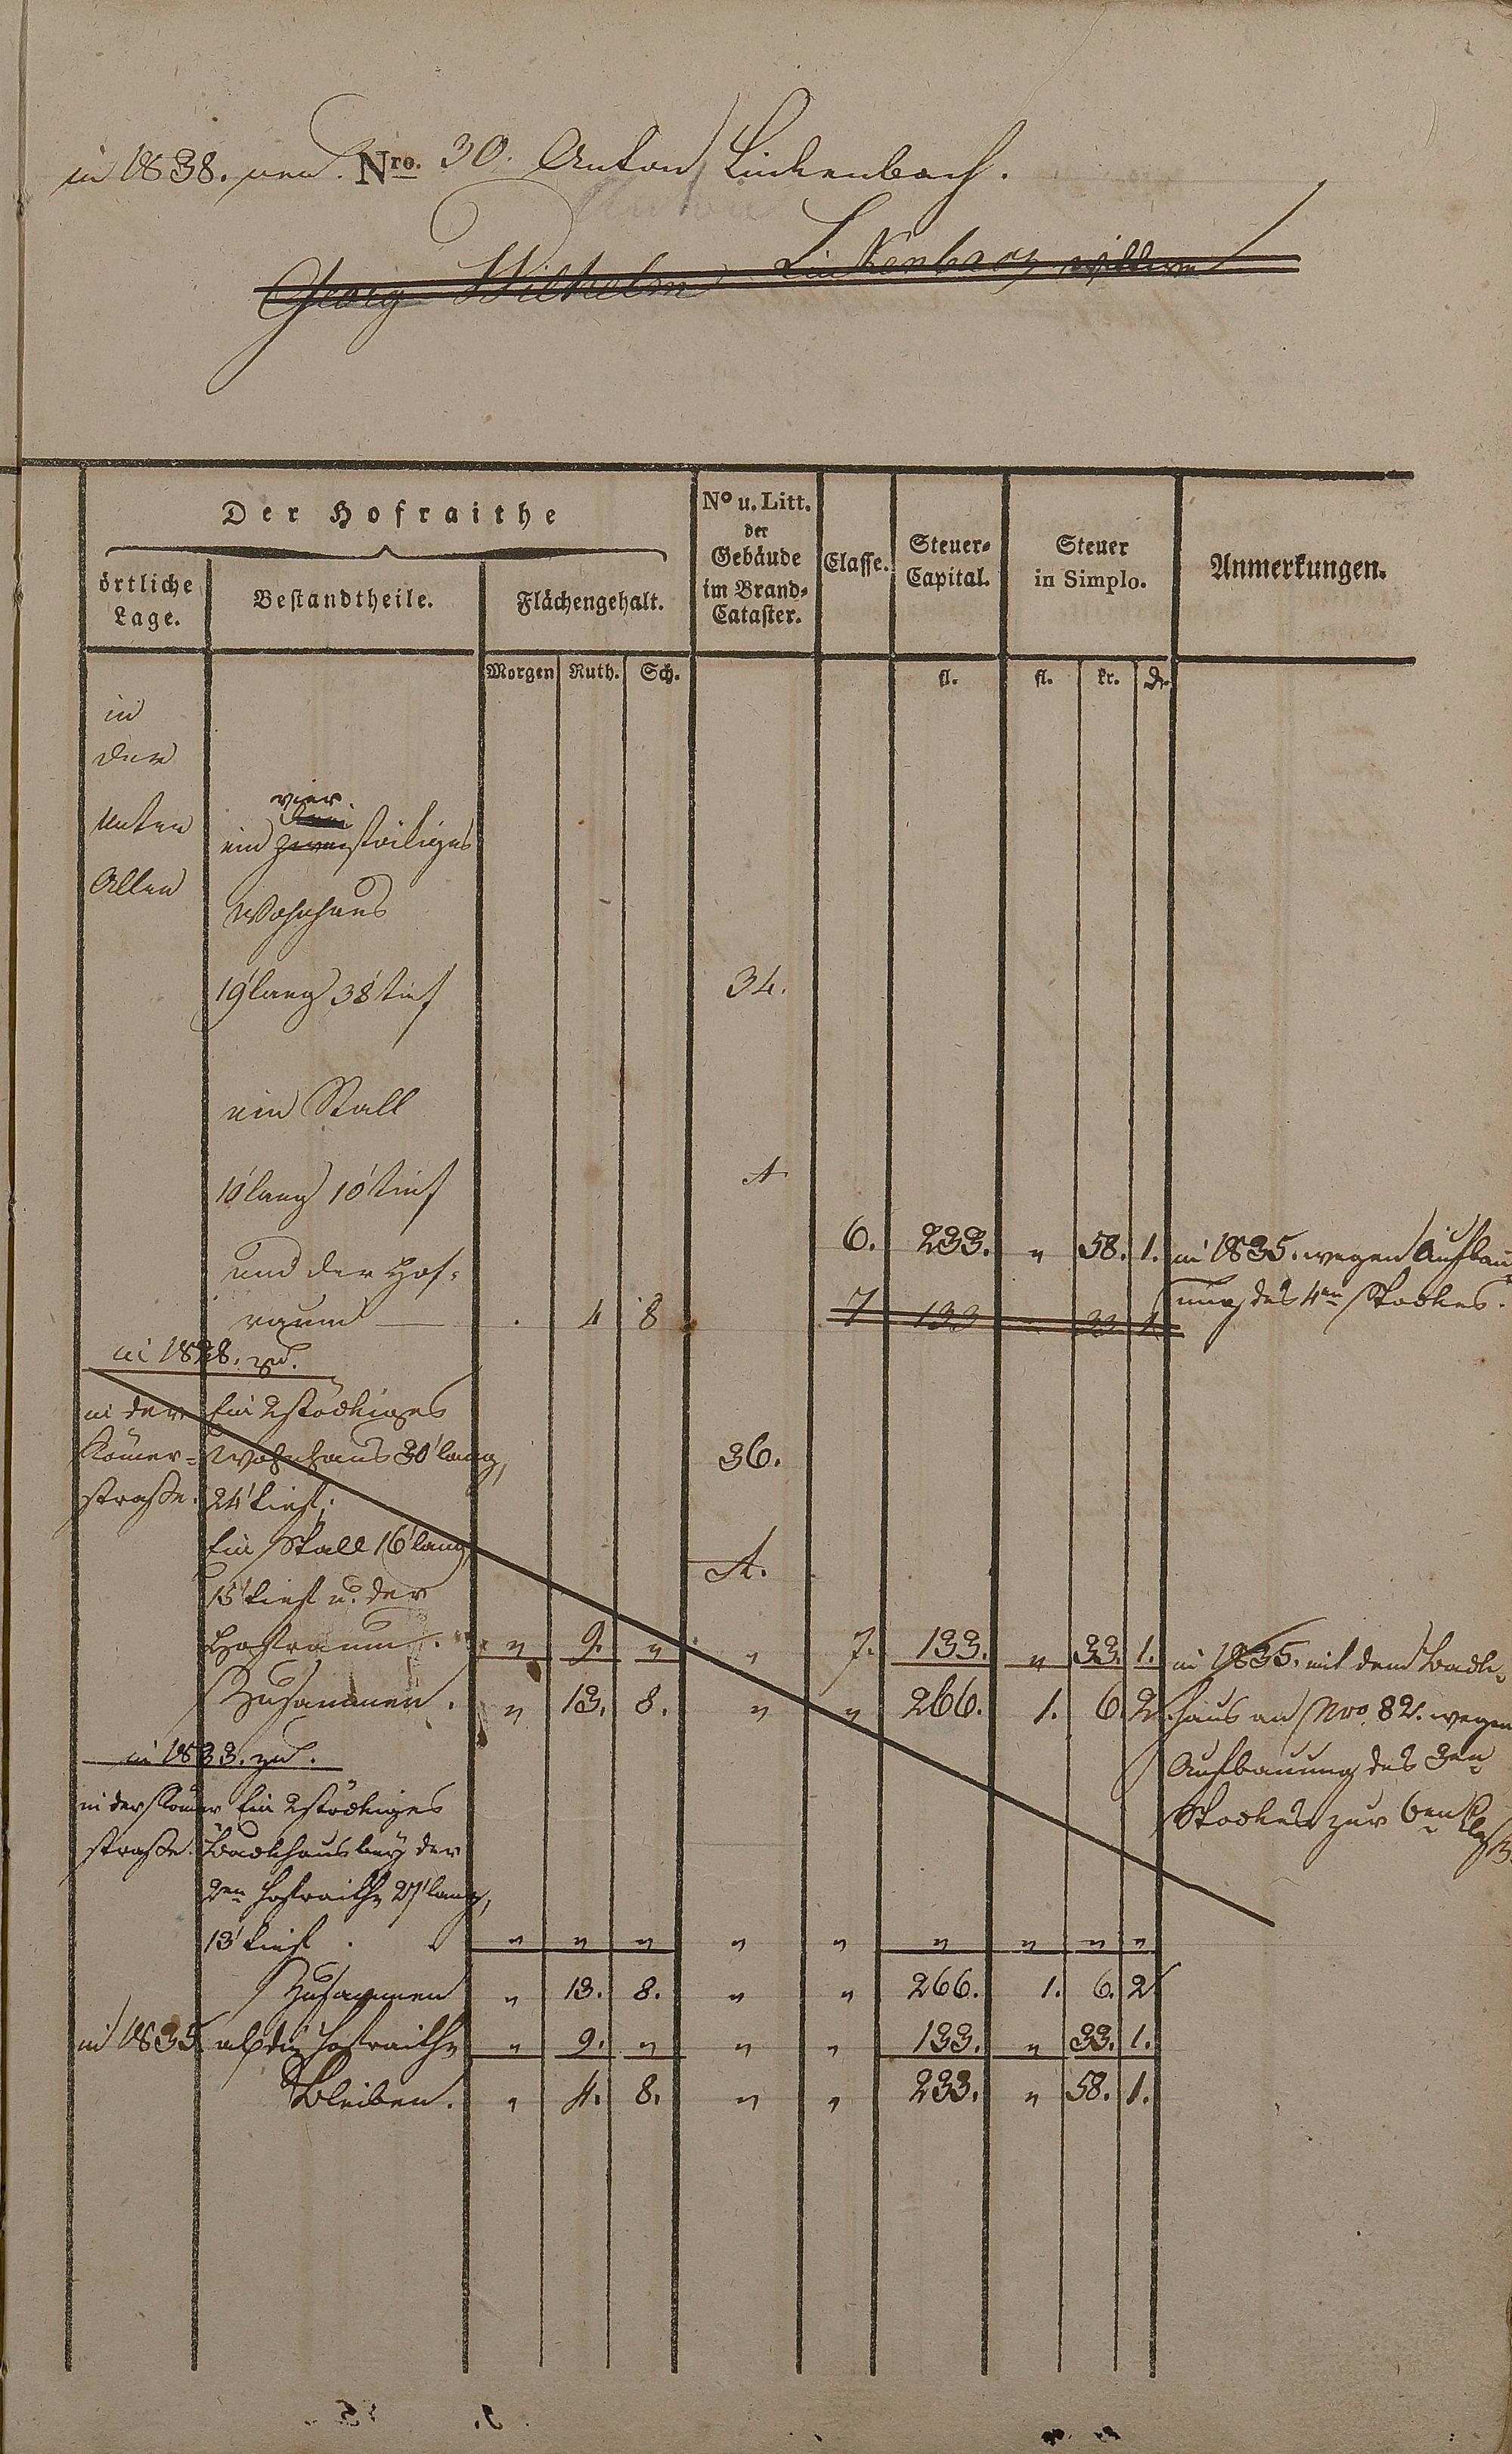 in 1838. neu. Nro. 30. Anton Linkenbach.
Georg Wilhelm Linkenbach
Der Hofraithe
örtliche Lage.
Bestandtheile.
Flächengehalt.
No u. Litt. der Gebäude im Brand-Cataster.
Classe.
Steuer-Capital.
Steuer in Simplo.
Anmerkungen.
Morgen Ruth. Sch. fl. fl. kr. d.
in
der
unten
Allee
vier
drei
ein zweistökiges
Wohnhaus
19' lang 38' tief 34.
ein Stall
10' lang 10' tief A
und der Hof- 6. 233. " 58. 1. in 1835. wegen Aufbau-
raum . 4 8 7 133 " 33 1 ung des 4en Stockes.
in 1828. zu.
in der Ein 2stöckiges
Römer- Wohnhaus 30' lang, 36.
straße. 24' tief;
Ein Stall 16' lang, A.
15' tief u. der
Hofraum. " 9. " " 7. 133. " 33. 1. in 1835. mit dem Back-
Zusammen. " 13. 8. " " 266. 1. 6. 2. haus an Nro. 82. wegen
Aufbauung des 3en
Stockes zur 6en Classe.
in 1833. zu.
in der Römer Ein 2stöckiges
straße. Backhaus bey der
2en Hofraithe 27' lang,
13' tief . " " " " " " " " "
Zusammen " 13. 8. " " 266. 1. 6. 2
in 1835. ab die Hofraithe " 9. " " " 133. " 33. 1.
Bleiben. " 4. 8. " " 233. " 58. 1.